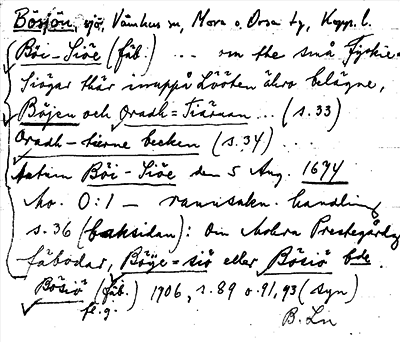 Bösjön, sjö, Våmhus sn, Mora o. Orsa tg, Kopp. l.
Böi-Siöe (fäb.) ... om the små Fyskie-
Siögar thär inuppå Lööten ähro belägne,
Böjen och Oradh=Tiärnan ... (s.33)
Oradh-tierne becken (s.34) ...
Actum Böi-Siöe den 5 Aug. 1674
Mo. O:1 – rannsakn. handling
s.36 (baksidan): Om Mohra Prestegårdz
fäbodar, Böye=siö eller Bösiö bde.
Bösiö (fäb.) 1906, s.89 o 91, 93 (syn)
fl. g.
B. Ln